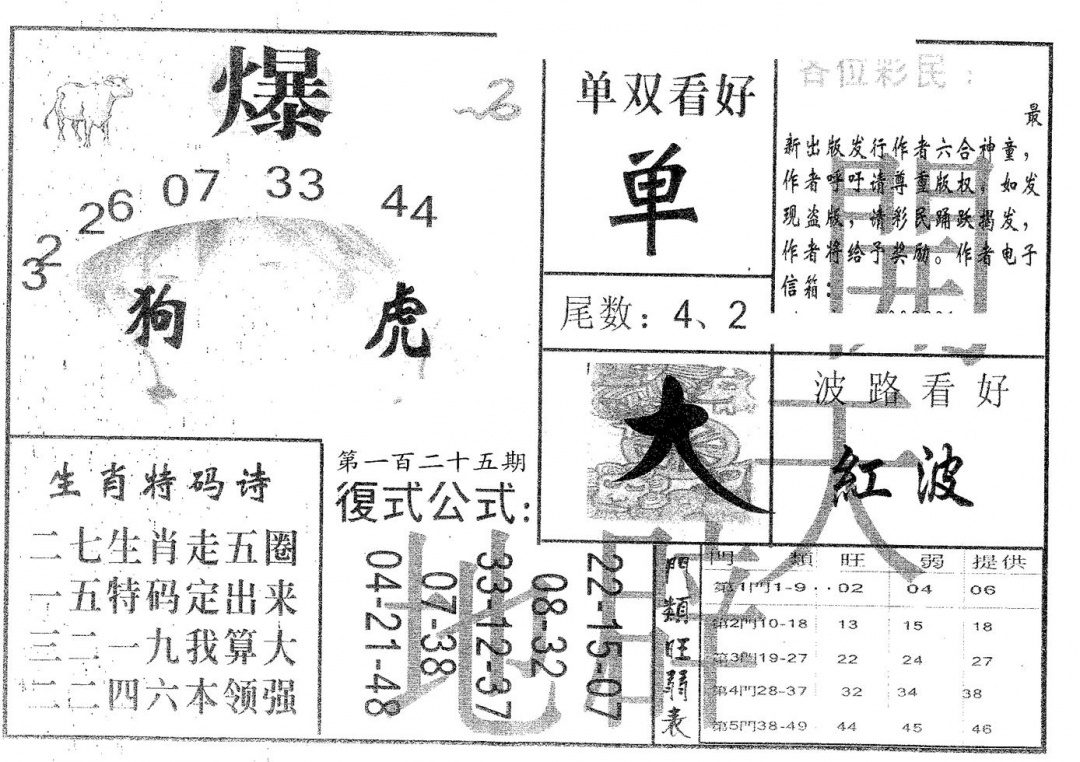 爆
32
26
07
33
44
狗 虎
单双看好
单
尾数：4、2
各位彩民：
最
新出版发行作者六合神童，
作者呼吁请尊重版权。如发
现盗版，情彩民踊跃揭发，
作者将给予奖励。作者电子
信箱：
大
波路看好
紅波
生肖特码诗
二七生肖走五圈
一五特码定出来
三二一九我算大
二二四六本领强
第一百二十五期
復式公式：
04-21-48
07-38
33-12-37
08-32
22-15-07
門類旺弱表
門 類 旺 弱 提供
第1門1-9 02 04 06
第2門10-18 13 15 18
第3門19-27 22 24 27
第4門28-37 32 34 38
第5門38-49 44 45 46